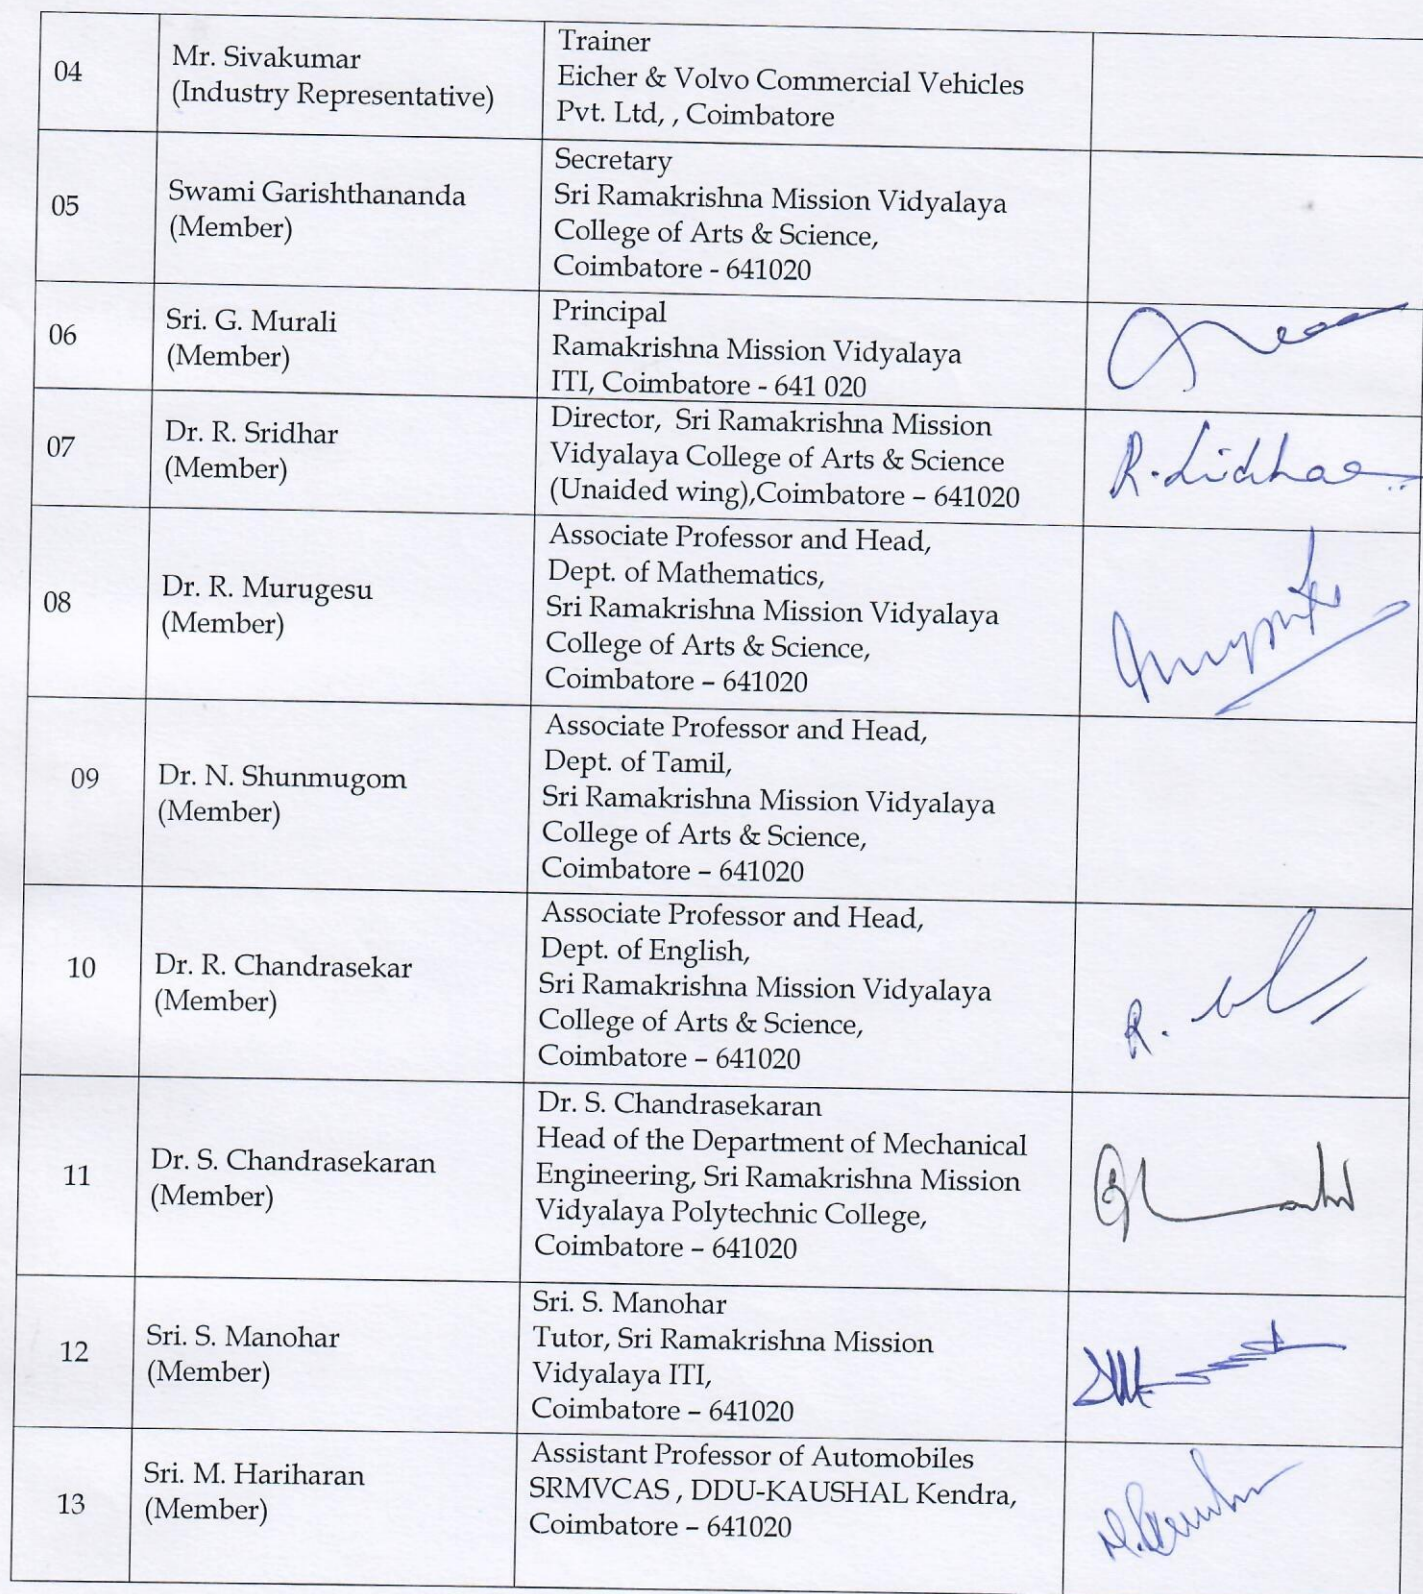 04
Mr. Sivakumar
(Industry Representative)
Trainer
Eicher & Volvo Commercial Vehicles
Pvt. Ltd, , Coimbatore
05
Swami Garishthananda
(Member)
Secretary
Sri Ramakrishna Mission Vidyalaya
College of Arts & Science,
Coimbatore - 641020
06
Sri. G. Murali
(Member)
Principal
Ramakrishna Mission Vidyalaya
ITI, Coimbatore - 641 020
07
Dr. R. Sridhar
(Member)
Director, Sri Ramakrishna Mission
Vidyalaya College of Arts & Science
(Unaided wing),Coimbatore – 641020
08
Dr. R. Murugesu
(Member)
Associate Professor and Head,
Dept. of Mathematics,
Sri Ramakrishna Mission Vidyalaya
College of Arts & Science,
Coimbatore – 641020
09
Dr. N. Shunmugom
(Member)
Associate Professor and Head,
Dept. of Tamil,
Sri Ramakrishna Mission Vidyalaya
College of Arts & Science,
Coimbatore – 641020
10
Dr. R. Chandrasekar
(Member)
Associate Professor and Head,
Dept. of English,
Sri Ramakrishna Mission Vidyalaya
College of Arts & Science,
Coimbatore – 641020
11
Dr. S. Chandrasekaran
(Member)
Dr. S. Chandrasekaran
Head of the Department of Mechanical
Engineering, Sri Ramakrishna Mission
Vidyalaya Polytechnic College,
Coimbatore – 641020
12
Sri. S. Manohar
(Member)
Sri. S. Manohar
Tutor, Sri Ramakrishna Mission
Vidyalaya ITI,
Coimbatore – 641020
13
Sri. M. Hariharan
(Member)
Assistant Professor of Automobiles
SRMVCAS , DDU-KAUSHAL Kendra,
Coimbatore – 641020